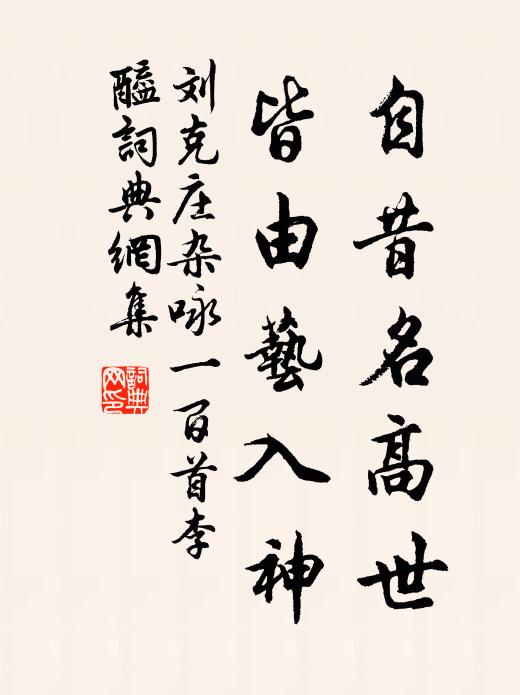 自昔名高世
皆由藝入神
刘克庄杂咏一百首李
醯詞典網集
詞典网印